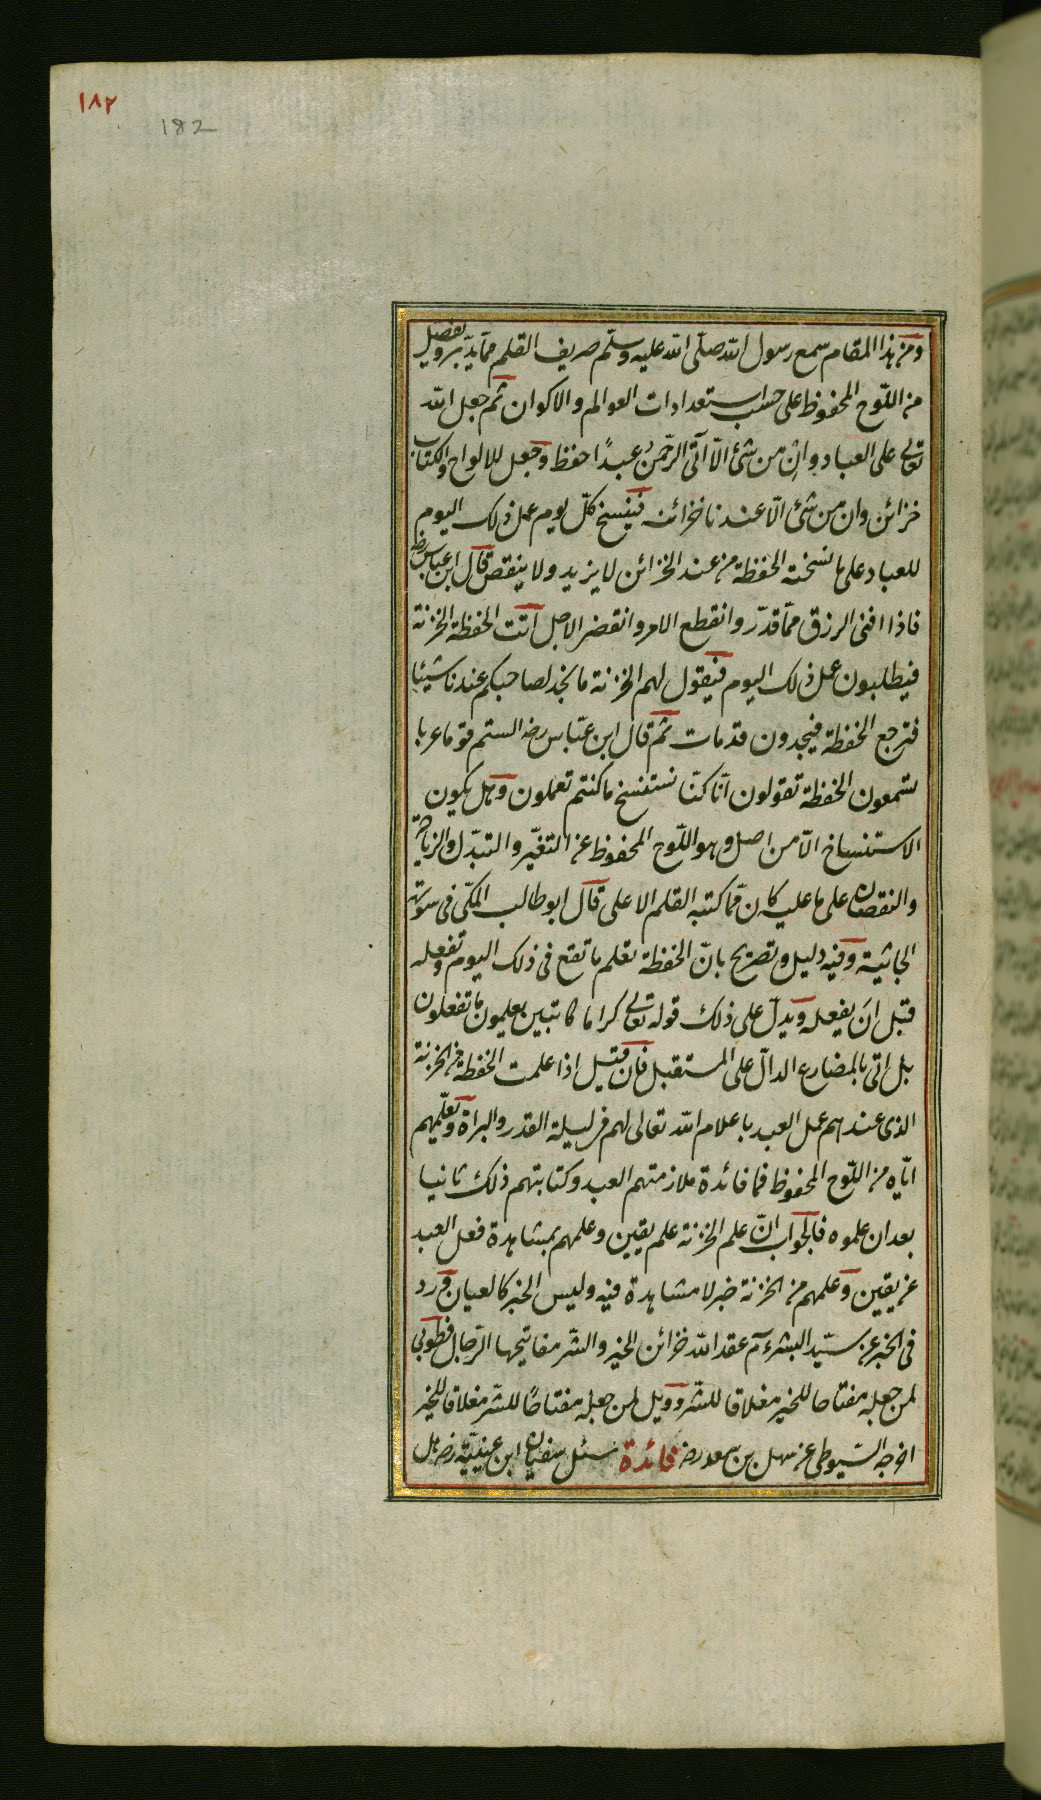 ١٨٢
182
ومن هذا المقام سمع رسول الله صلّى الله عليه وسلّم صريف القلم ممّا يدبّر ويفصل
من اللّوح المحفوظ على حسب استعدادات العوالم والاكوان ثم جعل الله
تعالى على العباد وان من شئ الّا آتى الرّحمن عبدًا حفظ وجعل للالواح والكتاب
خزائن وان من شئ الّا عندنا خزائنه فينسخ كلّ يوم عمل ذلك اليوم
للعباد على ما نسخته الحفظة من عند الخزائن لا يزيد ولا ينقص قال ابن عباس رض
فاذا افنى الرزق ممّا قدّر وانقطع الامر وانقضر الاجل اتت الحفظة الخزنة
فيطلبون عمل ذلك اليوم فيقول لهم الخزنة ما نجد لصاحبكم عندنا شيئا
فترجع الحفظة فيجدون قدمات ثم قال ابن عبّاس رضه الستم قوما عربا
تسمعون الحفظة تقولون انّا كنّا نستنسخ ما كنتم تعملون وهل يكون
الاستنساخ الّا من اصل وهو اللّوح المحفوظ عن التغيّر والتبدّل والزيادة
والنقصان على ما عليه كان ممّا كتبه القلم الاعلى قال ابو طالب المكّى فى سورة
الجاثية وفيه دليل وتصريح بانّ الحفظة تعلم ما تقع فى ذلك اليوم وتفعله
قبل ان يفعله ويدلّ على ذلك قوله تعالى كراما كاتبين يعلمون ما تفعلون
بل اتى بالمضارع الدالّ على المستقبل فان قيل اذا علمت الحفظة من الخزنة
الذى عندهم عمل العبد باعلام الله تعالى لهم فى ليلة القدر والبراة وتعلّمهم
ايّاه من اللّوح المحفوظ فما فائدة ملازمتهم العبد وكتابتهم ذلك ثانيا
بعد ان علموه فالجواب انّ علم الخزنة علم يقين وعلمهم بمشاهدة فعل العبد
عن يقين وعلمهم من الخزنة خبر لا مشاهدة فيه وليس الخبر كالعيان ورد
فى الخبر عن سيّد البشر عم عقد الله خزائن الخير والشّر مفاتيحها الرّجال فطوبى
لمن جعله مفتاحا للخير مغلاقا للشّر وويل لمن جعله مفتاحًا للشّر مغلاقا للخير
اخرجه السّيوطى عن سهل بن سعد رضه فائدة سئل سفيان ابن عيينة رضه هل